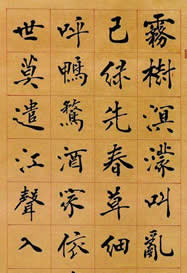 霧樹溟濛叫亂
已綠先春草細
呼鴨鶩酒家依
世莫遣江聲入